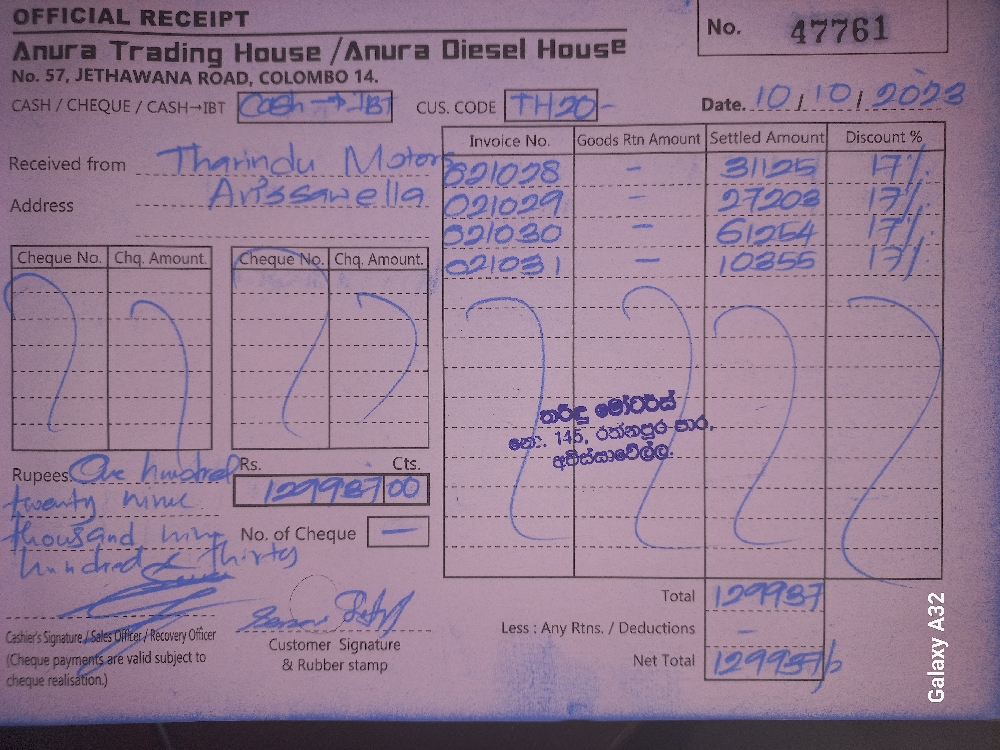 OFFICIAL RECEIPT
No. 47761
Anura Trading House /Anura Diesel House
No. 57, JETHAWANA ROAD, COLOMBO 14.
CASH / CHEQUE / CASH→IBT Cash → IBT CUS. CODE TH20- Date. 10 / 10 / 2023
Received from Tharindu Motors
Address Avissawella
Invoice No. Goods Rtn Amount Settled Amount Discount %
021028 - 31125 17%
021029 - 27203 17%
021030 - 61254 17%
021031 - 10355 17%
Cheque No. Chq. Amount. Cheque No. Chq. Amount.
තරිඳු මෝටර්ස්
නො. 145, රත්නපුර පාර,
අවිස්සාවේල්ල.
Rupees One hundred
twenty nine
thousand nine
hundred & thirty
Rs. Cts.
129937 00
No. of Cheque -
Total 129937
Less : Any Rtns. / Deductions -
Net Total 129937/
Cashier's Signature / Sales Officer / Recovery Officer
(Cheque payments are valid subject to
cheque realisation.)
Customer Signature
& Rubber stamp
Galaxy A32